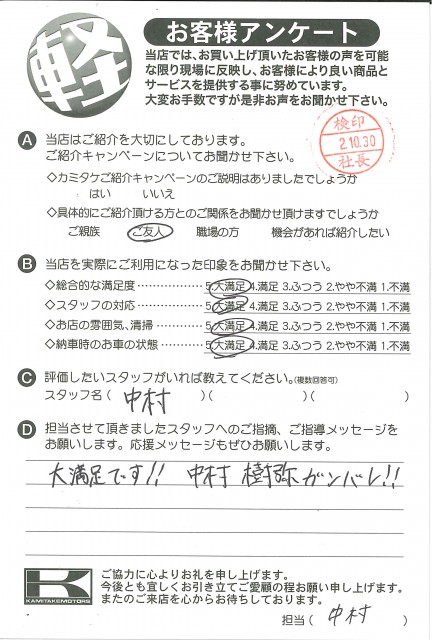 軽
お客様アンケート
当店では、お買い上げ頂いたお客様の声を可能
な限り現場に反映し、お客様により良い商品と
サービスを提供する事に努めています。
大変お手数ですが是非お声をお聞かせ下さい。
検印
2.10.30
社長
A 当店はご紹介を大切にしております。
ご紹介キャンペーンについてお聞かせ下さい。
◇カミタケご紹介キャンペーンのご説明はありましたでしょうか
はい いいえ
◇具体的にご紹介頂ける方とのご関係をお聞かせ頂けますでしょうか
ご親族 ご友人 職場の方 機会があれば紹介したい
B 当店を実際にご利用になった印象をお聞かせ下さい。
◇総合的な満足度 ・・・・・・・・・・・・ 5.大満足 4.満足 3.ふつう 2.やや不満 1.不満
◇スタッフの対応 ・・・・・・・・・・・・ 5.大満足 4.満足 3.ふつう 2.やや不満 1.不満
◇お店の雰囲気、清掃 ・・・・・・・・・ 5.大満足 4.満足 3.ふつう 2.やや不満 1.不満
◇納車時のお車の状態 ・・・・・・・・ 5.大満足 4.満足 3.ふつう 2.やや不満 1.不満
C 評価したいスタッフがいれば教えてください。(複数回答可)
スタッフ名 ( 中村 )( )( )
D 担当させて頂きましたスタッフへのご指摘、ご指導メッセージを
お願いします。応援メッセージもぜひお願いします。
大満足です!! 中村 樹弥 ガンバレ!!
K
KAMITAKEMOTORS
ご協力に心よりお礼を申し上げます。
今後とも宜しくお引き立てご愛顧の程お願い申し上げます。
またのご来店を心からお待ちしております。
担当 ( 中村 )